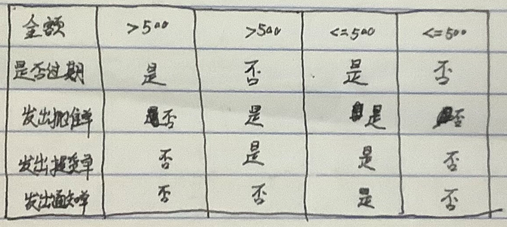 金额 >500 >500 <=500 <=500
是否过期 是 否 是 否
发出批准单 否 是 是 否
发出提货单 否 是 是 否
发出通知单 否 否 是 否